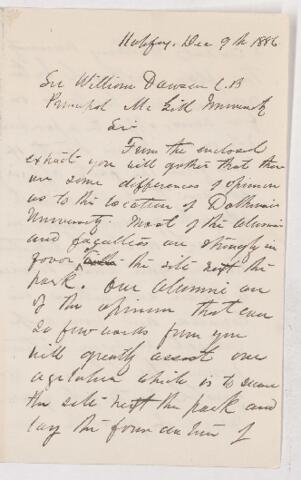 Halifax, Dec 9th 1886
Sir William Dawson C.B
Principal Mc Gill University
Sir
From the enclosed
extracts you will gather that there
are some differences of opinion
as to the location of Dalhousie
University. Most of the Alumni
and faculties are strongly in
favor the site next the
park. Our Alumni are
of the opinion that
a few words from you
will greatly assist our
agitation which is to secure
the site next the park and
lay the foundation of